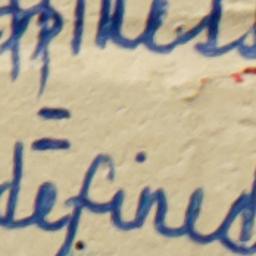 ppiness
=
defined